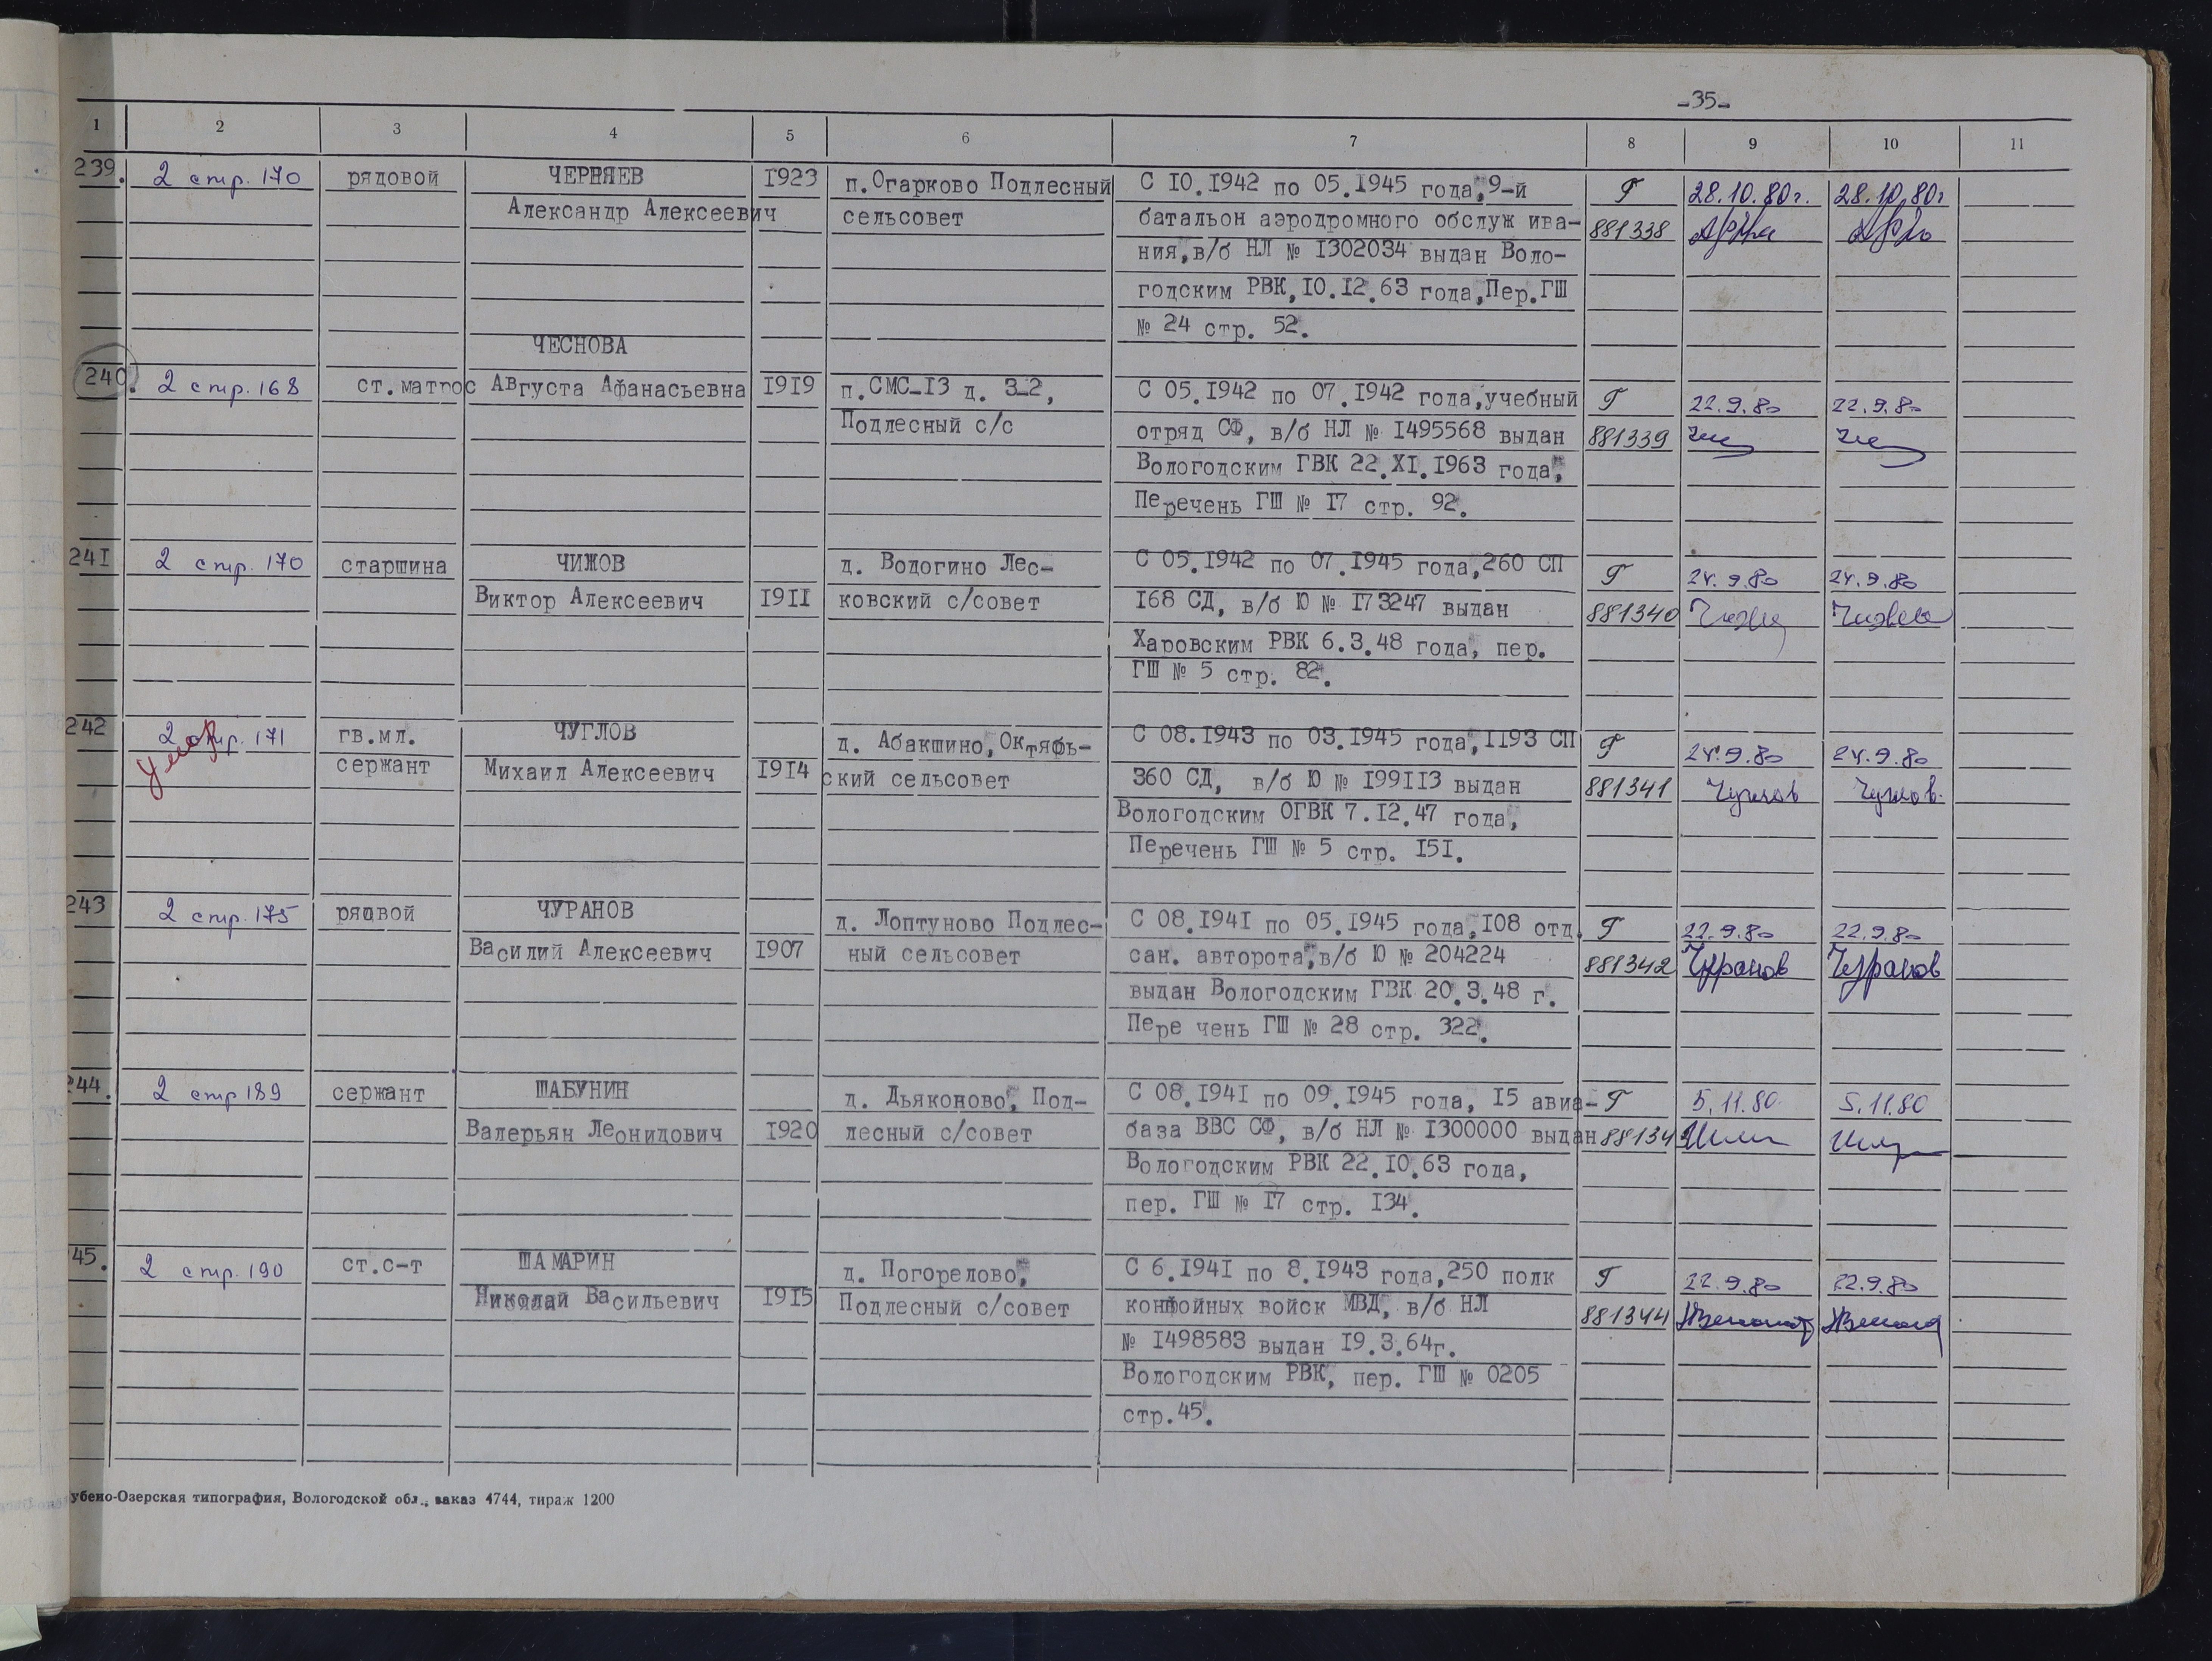 -35-
1 2 3 4 5 6 7 8 9 10 11
239. 2 стр. 170 рядовой ЧЕРНЯЕВ 1923 п.Огарково Подлесный С IO.I942 по 05.I945 года,9-й Г 28.10.80г. 28.10.80г
Александр Алексеевич сельсовет батальон аэродромного обслуж ива- 881338
ния,в/б НЛ № I302034 выдан Воло-
годским РВК,IO.I2.63 года,Пер.ГШ
№ 24 стр. 52.
ЧЕСНОВА
240. 2 стр. 168 ст.матрос Августа Афанасьевна I9I9 п.СМС-I3 д. 3-2, С 05.I942 по 07.I942 года,учебный Г 22.9.80 22.9.80
Подлесный с/с отряд СФ, в/б НЛ № I495568 выдан 881339
Вологодским ГВК 22.XI.I963 года,
Перечень ГШ № I7 стр. 92.
24I 2 стр. 170 старшина ЧИЖОВ д. Водогино Лес- С 05.I942 по 07.I945 года,260 СП Г 24.9.80 24.9.80
Виктор Алексеевич I9II ковский с/совет I68 СД, в/б Ю № I73247 выдан 881340
Харовским РВК 6.3.48 года, пер.
ГШ № 5 стр. 82.
242 2 стр. 171 умер гв.мл. ЧУГЛОВ д. Абакшино, Октябрь- С 08.I943 по 03.I945 года,II93 СП Г 24.9.80 24.9.80
сержант Михаил Алексеевич I9I4 ский сельсовет 360 СД, в/б Ю № I99II3 выдан 881341 Чуглов Чуглов.
Вологодским ОГВК 7.I2.47 года,
Перечень ГШ № 5 стр. I5I.
243 2 стр. 175 рядвой ЧУРАНОВ д. Лоптуново Подлес- С 08.I94I по 05.I945 года,I08 отд. Г 22.9.80 22.9.80
Василий Алексеевич I907 ный сельсовет сан. авторота,в/б Ю № 204224 881342 Чуранов Чуранов
выдан Вологодским ГВК 20.3.48 г.
Пере чень ГШ № 28 стр. 322.
44. 2 стр 189 сержант ШАБУНИН д. Дьяконово, Под- С 08.I94I по 09.I945 года, I5 авиа- Г 5.11.80 5.11.80
Валерьян Леонидович I920 лесный с/совет база ВВС СФ, в/б НЛ № I300000 выдан 88134
Вологодским РВК 22.IO.63 года,
пер. ГШ № I7 стр. I34.
45. 2 стр. 190 ст.с-т ШАМАРИН д. Погорелово, С 6.I94I по 8.I943 года,250 полк Г 22.9.80 22.9.80
Николай Васильевич I9I5 Подлесный с/совет конвойных войск МВД, в/б НЛ 881344
№ I498583 выдан I9.3.64г.
Вологодским РВК, пер. ГШ № 0205
стр.45.
убено-Озерская типография, Вологодской обл., заказ 4744, тираж 1200